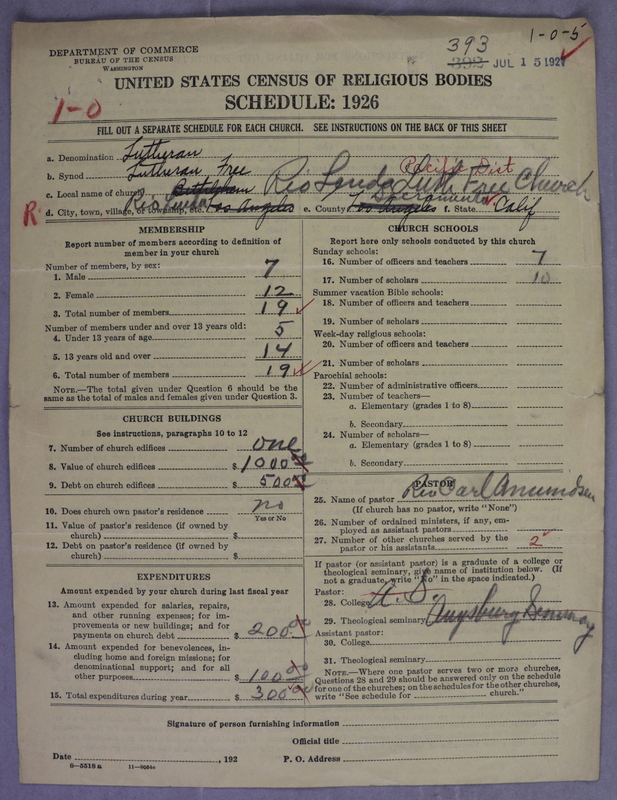 DEPARTMENT OF COMMERCE
BUREAU OF THE CENSUS
WASHINGTON
393
392
1-0-5
JUL 15 1927
1-0
UNITED STATES CENSUS OF RELIGIOUS BODIES
SCHEDULE: 1926
FILL OUT A SEPARATE SCHEDULE FOR EACH CHURCH. SEE INSTRUCTIONS ON THE BACK OF THIS SHEET
a. Denomination Lutheran
b. Synod Lutheran Free Pacific Dist
c. Local name of church Bethlehem Rio Linda Luth Free Church
R d. City, town, village, or township, etc. Rio Linda Los Angeles e. County Los Angeles Sacramento f. State Calif
MEMBERSHIP
Report number of members according to definition of
member in your church
Number of members, by sex:
1. Male 7
2. Female 12
3. Total number of members 19
Number of members under and over 13 years old:
4. Under 13 years of age 5
5. 13 years old and over 14
6. Total number of members 19
NOTE.—The total given under Question 6 should be the
same as the total of males and females given under Question 3.
CHURCH BUILDINGS
See instructions, paragraphs 10 to 12
7. Number of church edifices one
8. Value of church edifices $ 1000
9. Debt on church edifices $ 500
10. Does church own pastor's residence no
Yes or No
11. Value of pastor's residence (if owned by
church) $
12. Debt on pastor's residence (if owned by
church) $
EXPENDITURES
Amount expended by your church during last fiscal year
13. Amount expended for salaries, repairs,
and other running expenses; for im-
provements or new building; and for
payments on church debt $ 200.00
14. Amount expended for benevolences, in-
cluding home and foreign missions; for
denominational support; and for all
other purposes $ 100.00
15. Total expenditures during year $ 300.00
CHURCH SCHOOLS
Report here only schools conducted by this church
Sunday schools:
16. Number of officers and teachers 7
17. Number of scholars 10
Summer vacation Bible schools:
18. Number of officers and teachers
19. Number of scholars
Week-day religious schools:
20. Number of officers and teachers
21. Number of scholars
Parochial schools:
22. Number of administrative officers
23. Number of teachers—
a. Elementary (grades 1 to 8)
b. Secondary
24. Number of scholars—
a. Elementary (grades 1 to 8)
b. Secondary
PASTOR
25. Name of pastor Rev Carl Amundsen
(If church has no pastor, write "None")
26. Number of ordained ministers, if any, em-
ployed as assistant pastors
27. Number of other churches served by the
pastor or his assistants 2
If pastor (or assistant pastor) is a graduate of a college or
theological seminary, give name of institution below. (If
not a graduate, write "No" in the space indicated.)
Pastor:
28. College A. S.
29. Theological seminary Augsburg Seminary
Assistant pastor:
30. College
31. Theological seminary
NOTE.—Where one pastor serves two or more churches,
Questions 28 and 29 should be answered only on the schedule
for one of the churches; on the schedules for the other churches,
write "See schedule for church."
Signature of person furnishing information
Official title
Date , 192 P. O. Address
8—5518 a 11—9054a